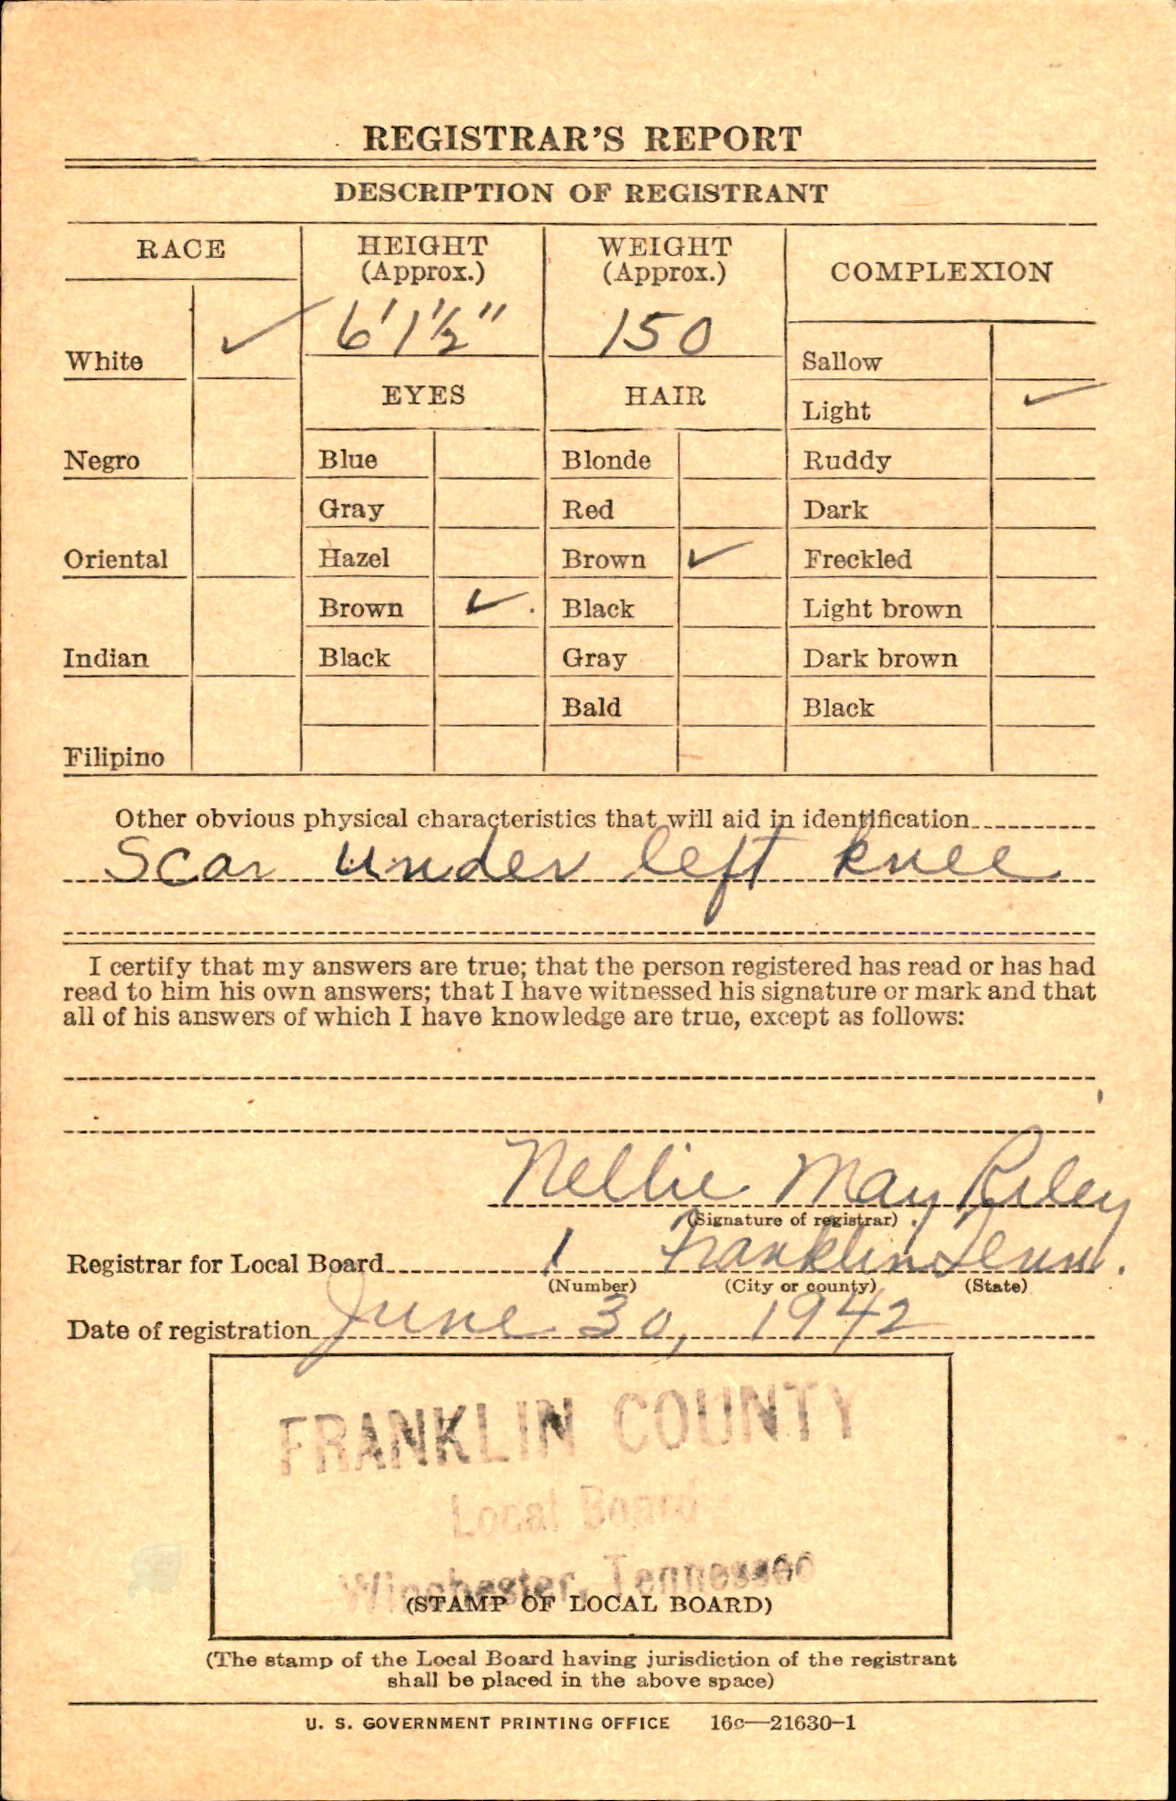 REGISTRAR'S REPORT
DESCRIPTION OF REGISTRANT
RACE
HEIGHT
(Approx.)
WEIGHT
(Approx.)
COMPLEXION
White ✓
6' 1 1/2"
150
Sallow
EYES
HAIR
Light ✓
Negro
Blue
Blonde
Ruddy
Gray
Red
Dark
Oriental
Hazel
Brown ✓
Freckled
Brown ✓
Black
Light brown
Indian
Black
Gray
Dark brown
Bald
Black
Filipino
Other obvious physical characteristics that will aid in identification
Scar under left knee
I certify that my answers are true; that the person registered has read or has had
read to him his own answers; that I have witnessed his signature or mark and that
all of his answers of which I have knowledge are true, except as follows:
Nellie May Riley
(Signature of registrar)
Registrar for Local Board 1 Franklin Tenn.
(Number) (City or county) (State)
Date of registration June 30, 1942
FRANKLIN COUNTY
Local Board
Winchester, Tennessee
(STAMP OF LOCAL BOARD)
(The stamp of the Local Board having jurisdiction of the registrant
shall be placed in the above space)
U. S. GOVERNMENT PRINTING OFFICE 16c—21630-1